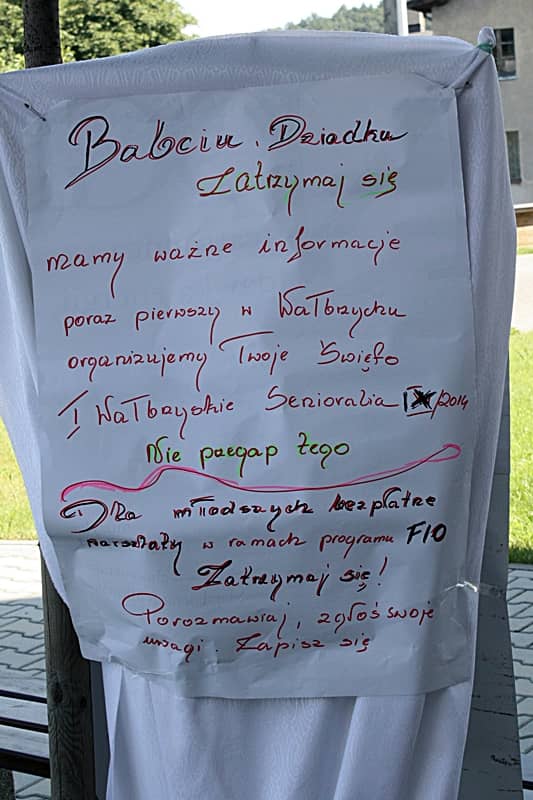 Babciu, Dziadku
Zatrzymaj się
mamy ważne informacje
poraz pierwszy w Wałbrzychu
organizujemy Twoje Święto
I Wałbrzyskie Senioralia IX/2014
Nie przegap tego
Dla młodszych bezpłatne
warsztaty w ramach programu FIO
Zatrzymaj się!
Porozmawiaj, zgłoś swoje
uwagi. Zapisz się